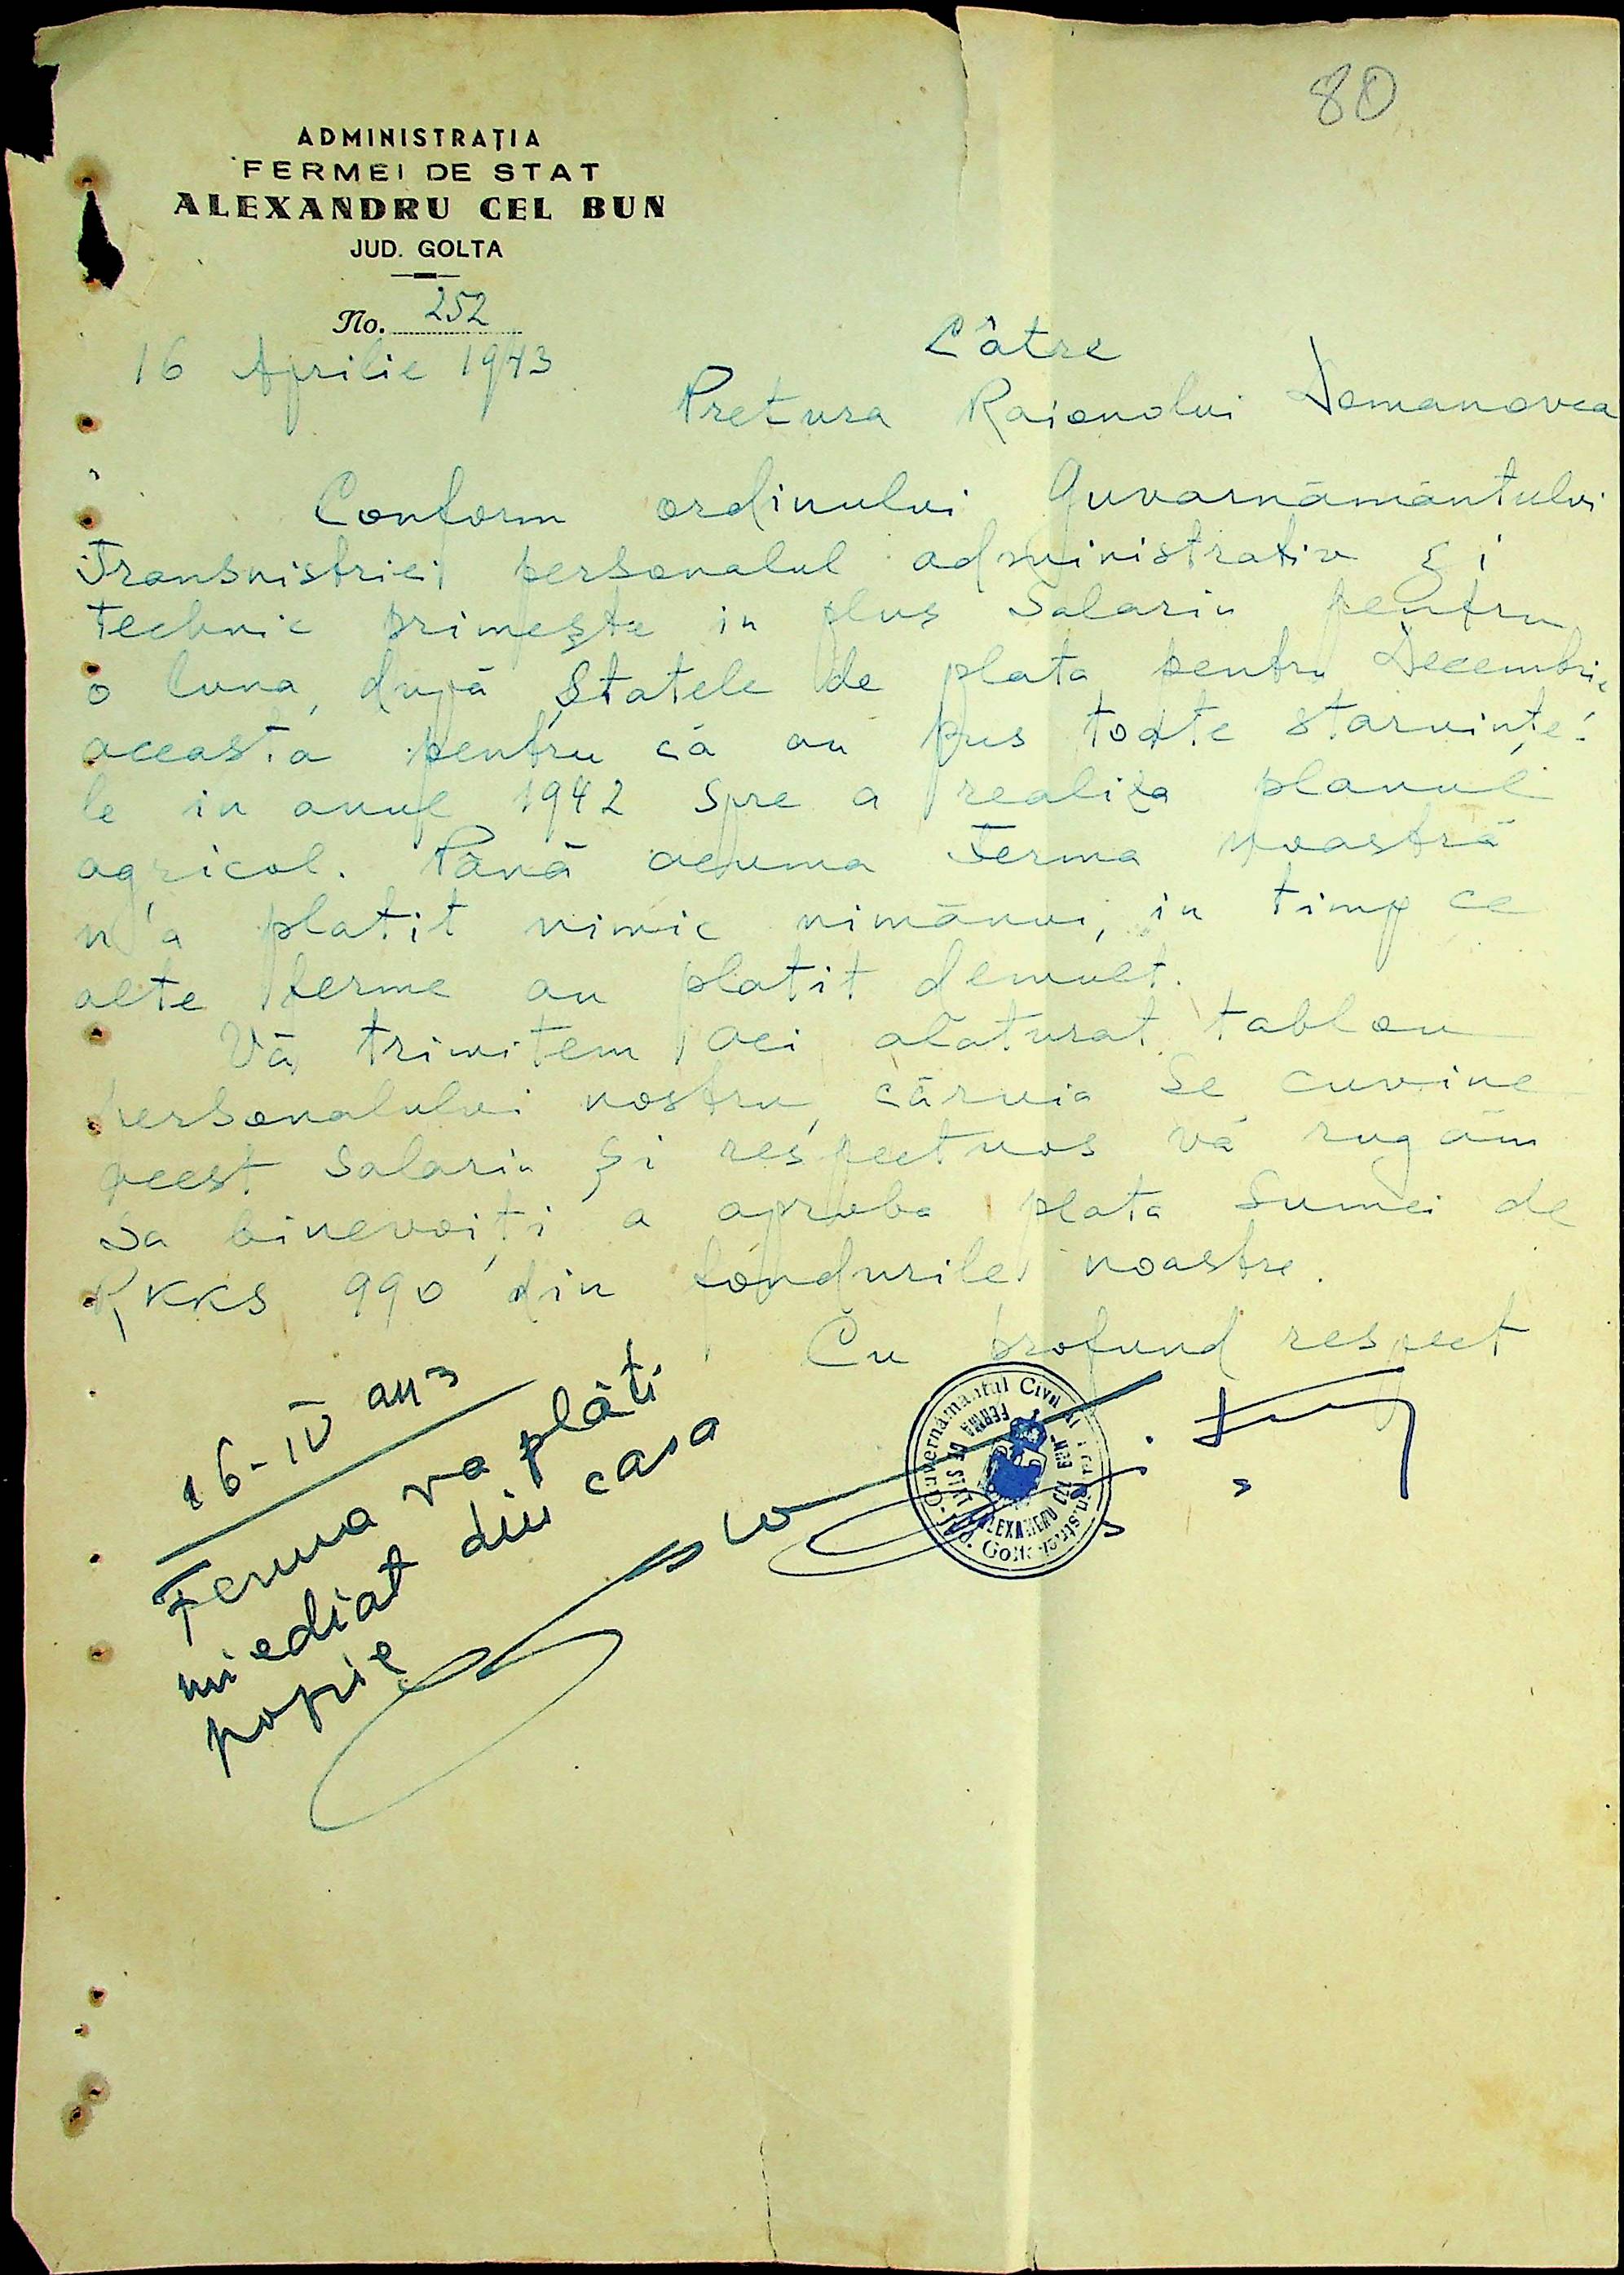 80
ADMINISTRAȚIA
FERMEI DE STAT
ALEXANDRU CEL BUN
JUD. GOLTA
No. 252
16 Aprilie 1943
Câtre
Pretura Raionolui Domanovca
Conform ordinului Guvarnămăntului
Transnistriei personalul administrativ și
technic primește in plus Salariu pentru
o luna, după Statele de plata pentru Decembrie
aceasta pentru că au pus toate staruințe-
le in anul 1942 spre a realiza planul
agricol. Pănă acuma Ferma noastră
n'a platit nimic nimănui, in timp ce
alte ferme au platit demult.
Vă trimitem aci alaturat tablou
personalului nostru, căruia se cuvine
acest salariu și respectuos vă rugăm
sa binevoiți a aproba plata sumei de
RKKS 990 din fondurile noastre.
Cu profund respect
16-IV au3
Ferma va plăti
miediat din casa
poprie
Guvernământul Civil al Transnistriei
Jud. Golta
FERMA DE STAT
ALEXANDRU CEL BUN